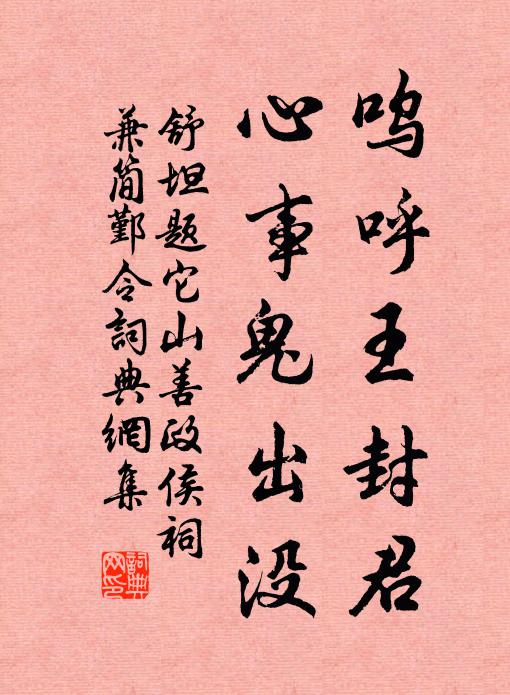 呜呼王封君
心事鬼出没
舒坦题它山善政侯祠
兼简鄞令詞典網集
詞典网印